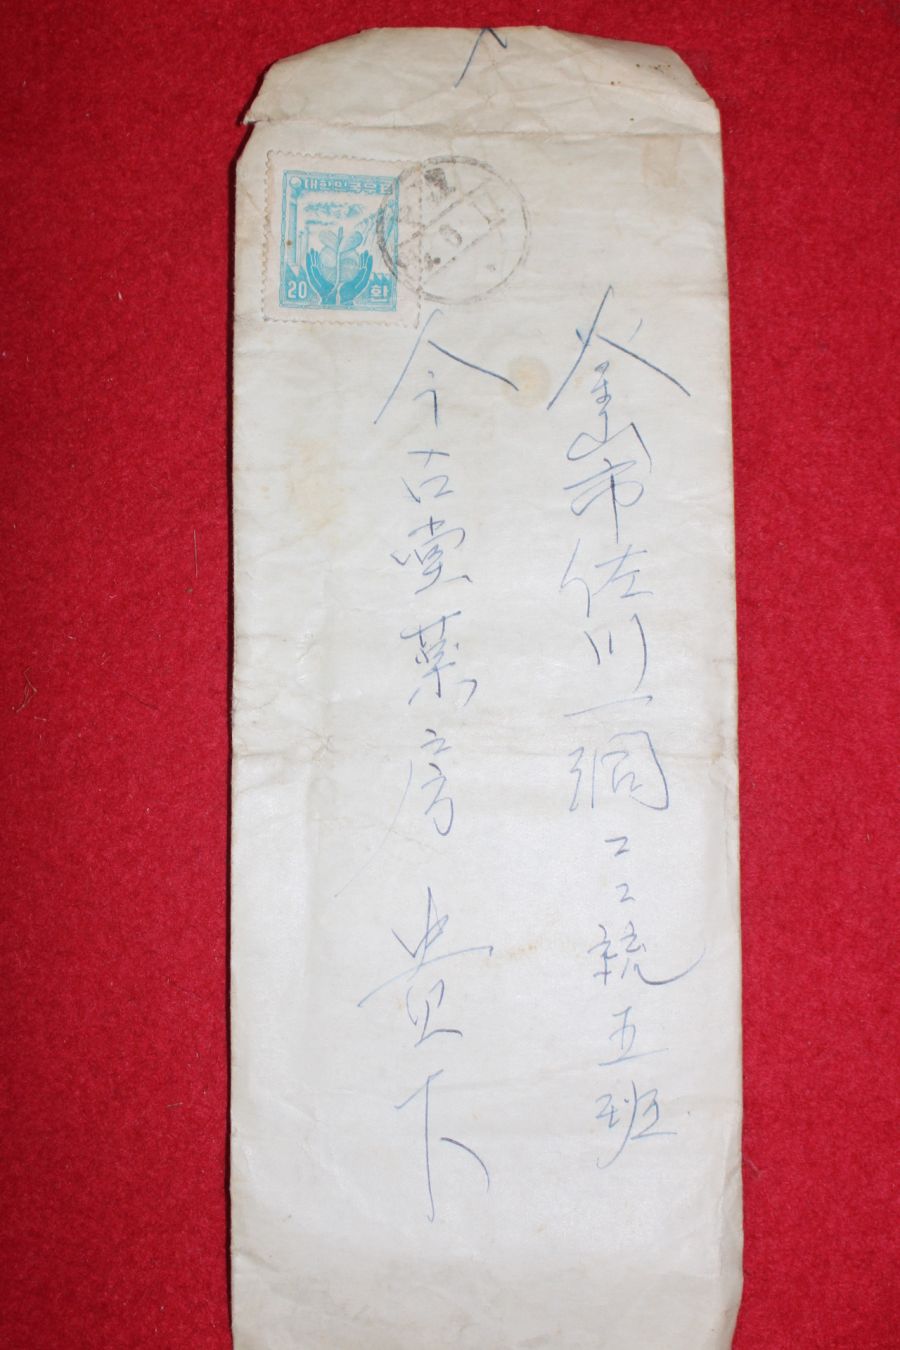 대한민국우표
20
환
釜山市佐川一洞二二統五班
今古堂薬房 貴下